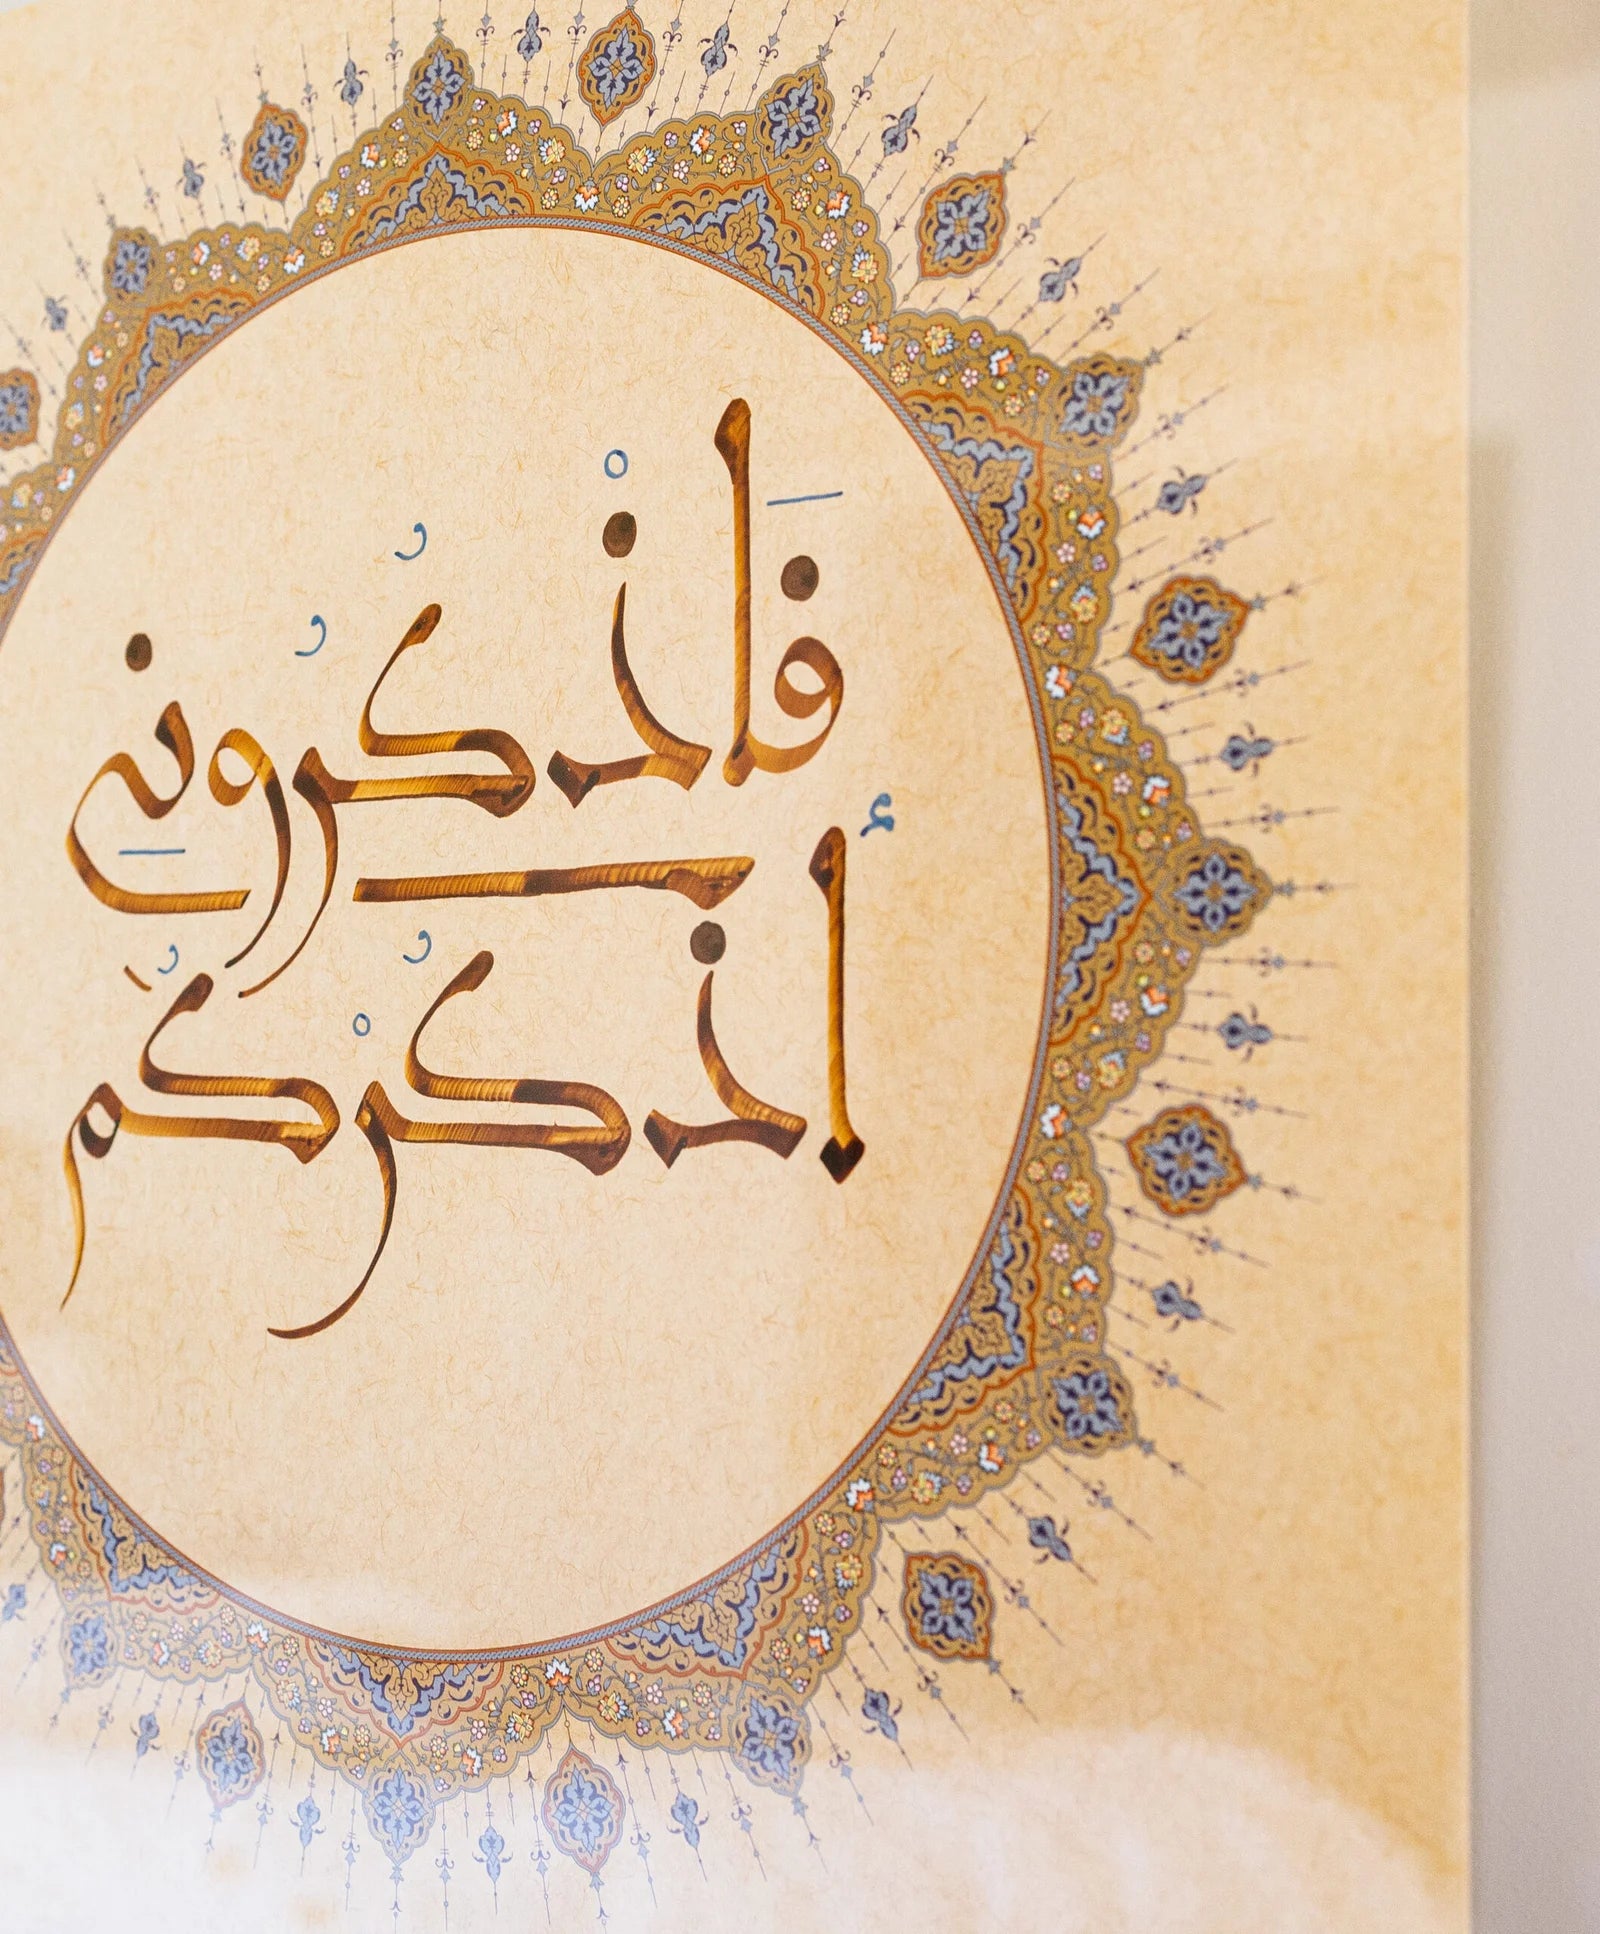 فَاذْكُرُونِي
أَذْكُرْكُمْ